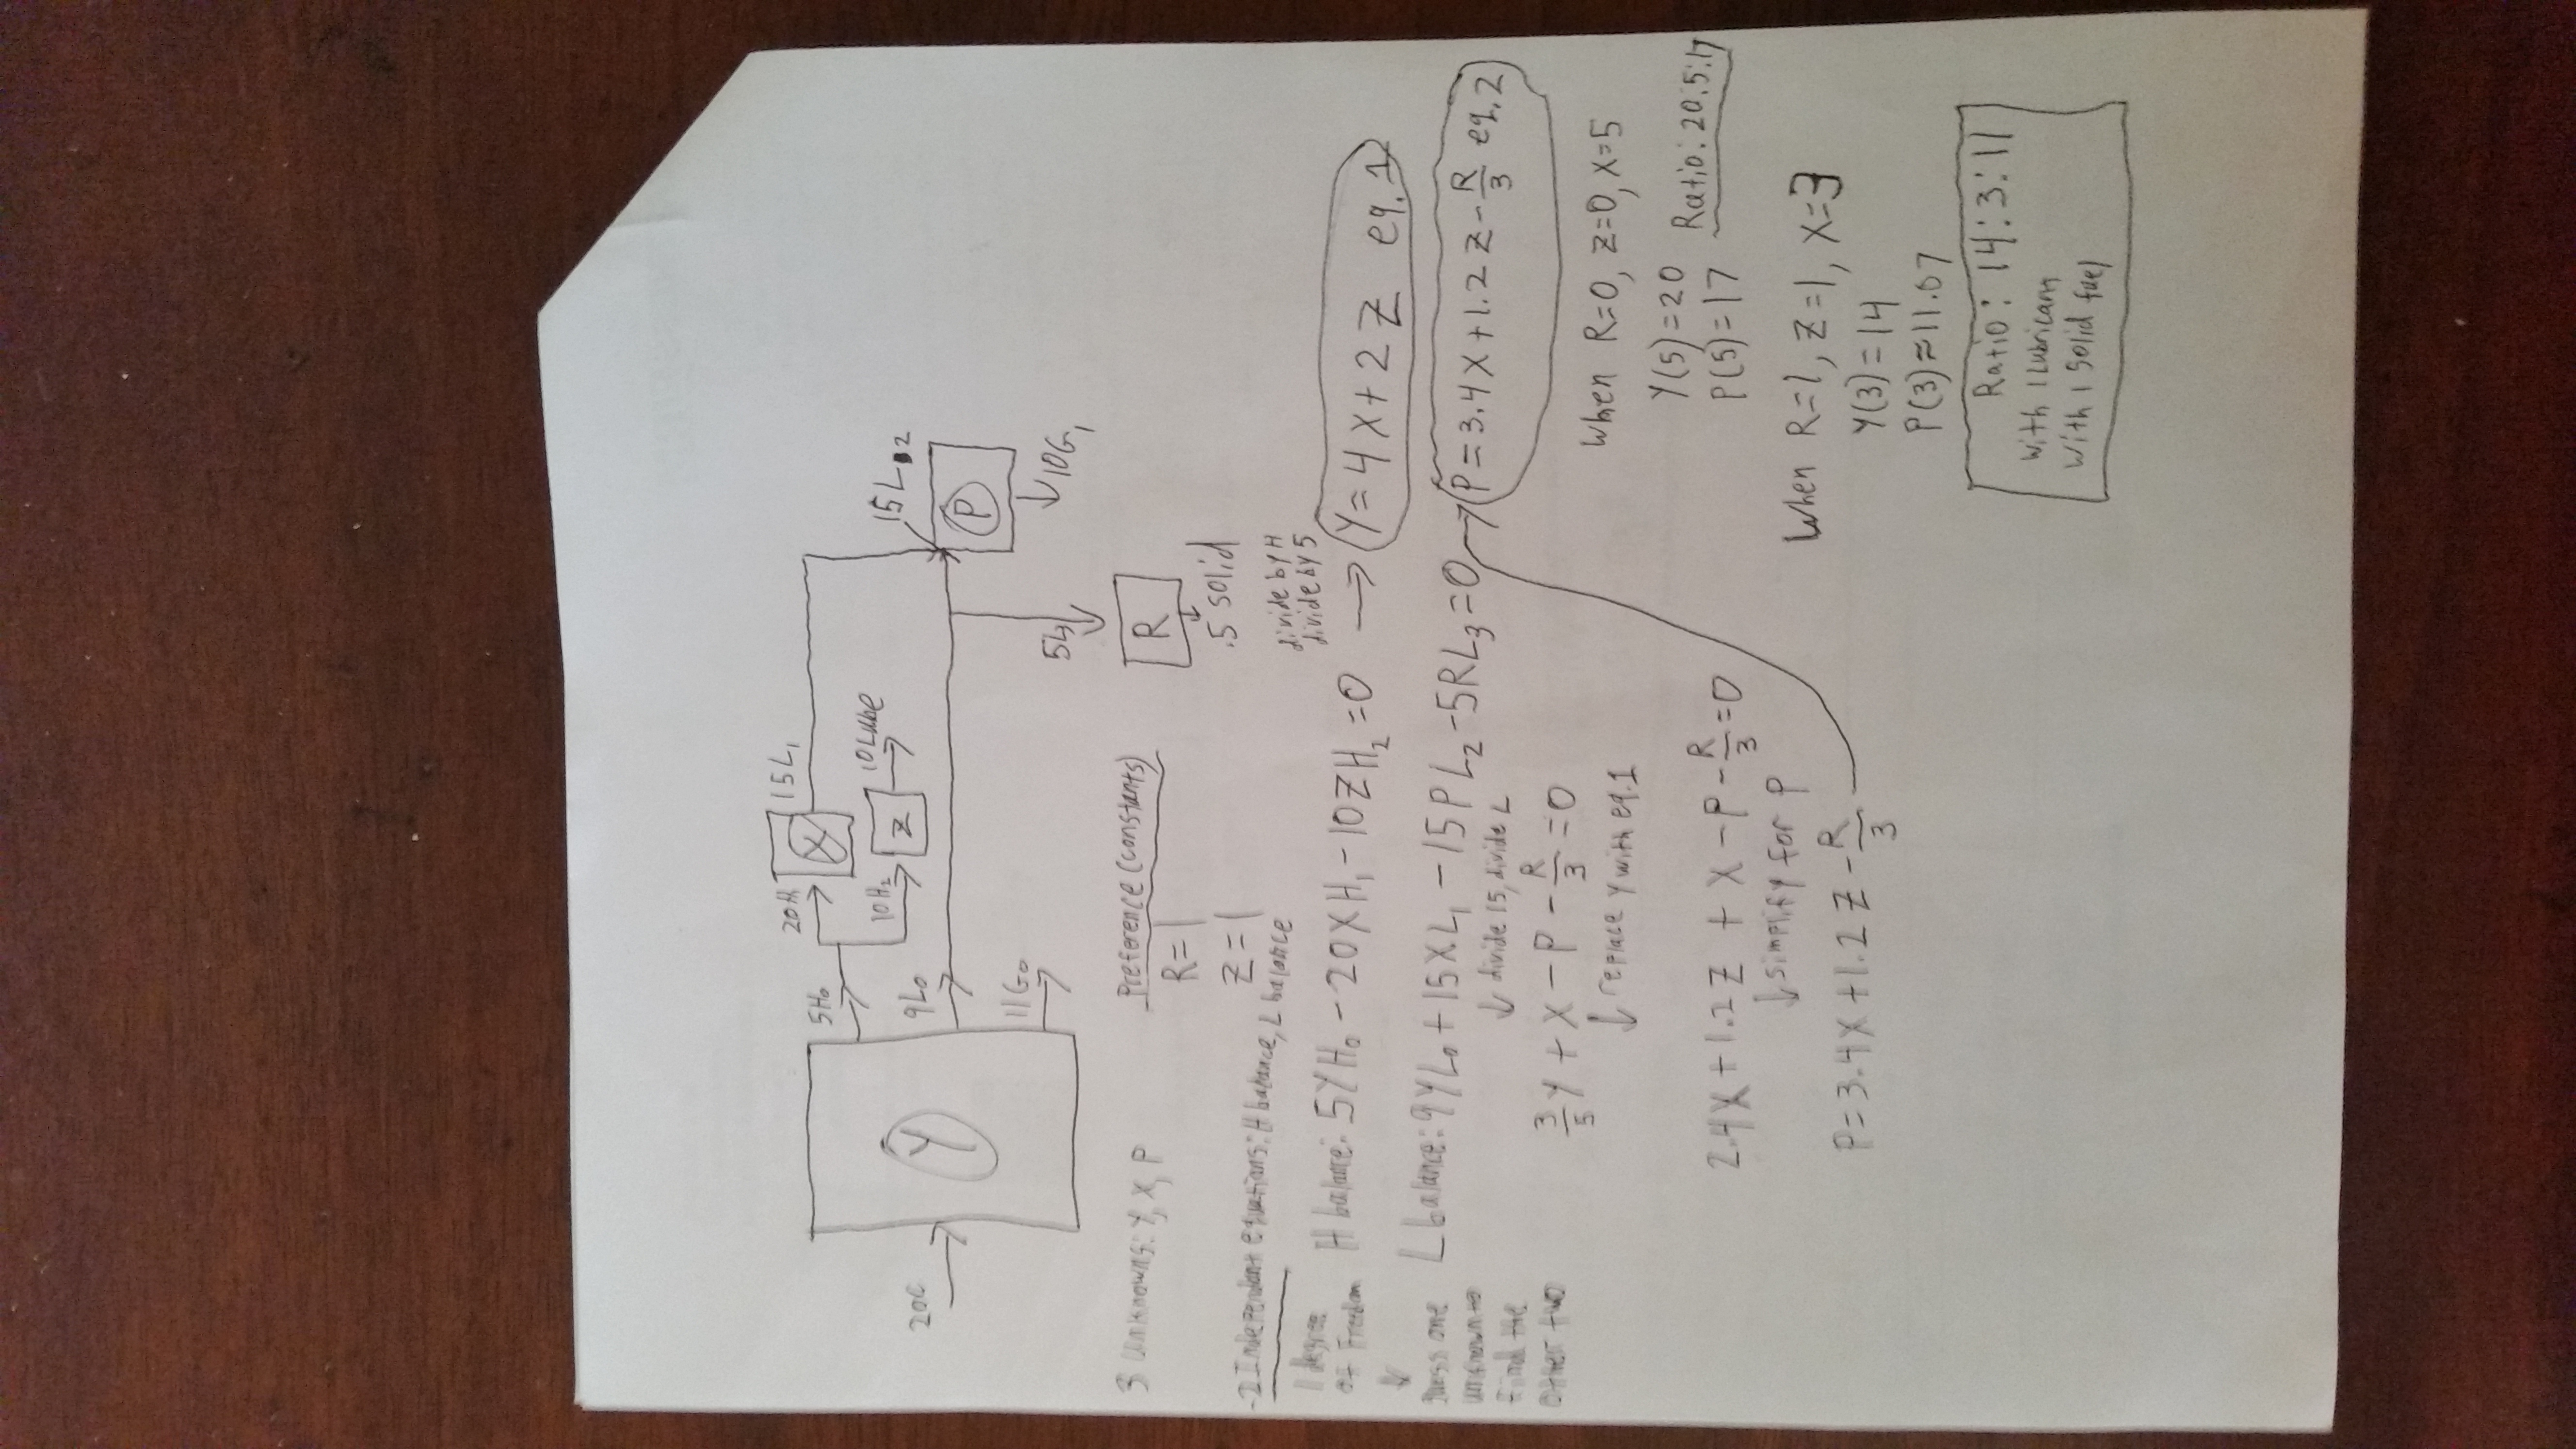 20C
Y
5H₀
9L₀
11G₀
20H
X
15L₁
10H₂
Z
10Lube
15L₂
P
10G₁
5L₃
R
.5 solid
3 unknowns: Y, X, P
-2 Independent equations: H balance, L balance
1 degree
of Freedom
↓
guess one
unknown to
find the
other two
Preference (constants)
R=1
Z=1
H balance: 5YH₀-20XH₁-10ZH₂=0 → Y=4X+2Z eq.1
divide by H
divide by 5
L balance: 9YL₀+15XL₁-15PL₂-5RL₃=0
↓ divide 15, divide L
3/5Y+X-P-R/3=0
↓ replace Y with eq.1
2.4X+1.2Z+X-P-R/3=0
↓ simplify for P
P=3.4X+1.2Z-R/3
→ P=3.4X+1.2Z-R/3 eq.2
When R=0, Z=0, X=5
Y(5)=20
P(5)=17
Ratio: 20:5:17
When R=1, Z=1, X=3
Y(3)=14
P(3)≈11.07
Ratio: 14:3:11
with 1 Lubricant
with 1 solid fuel